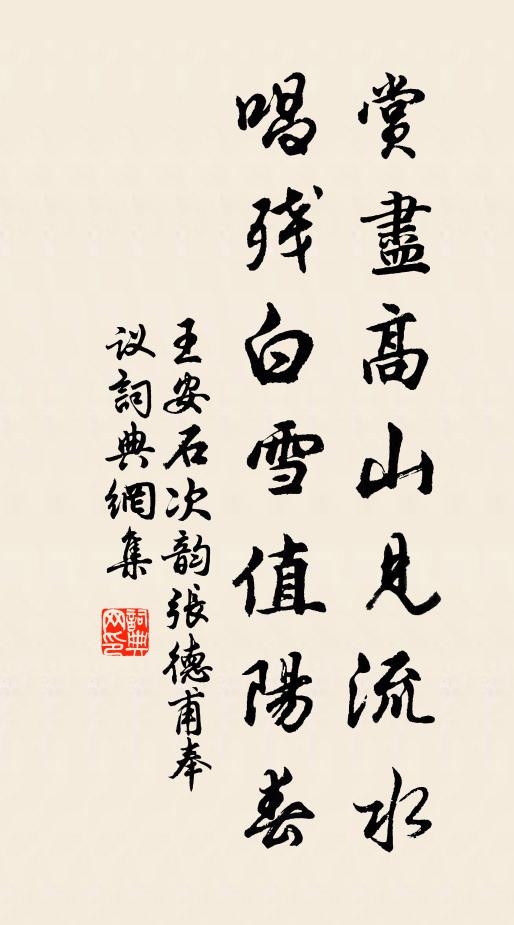 賞盡高山見流水
唱残白雪值陽春
王安石次韵張德甫奉
议詞典網集
詞典
网印